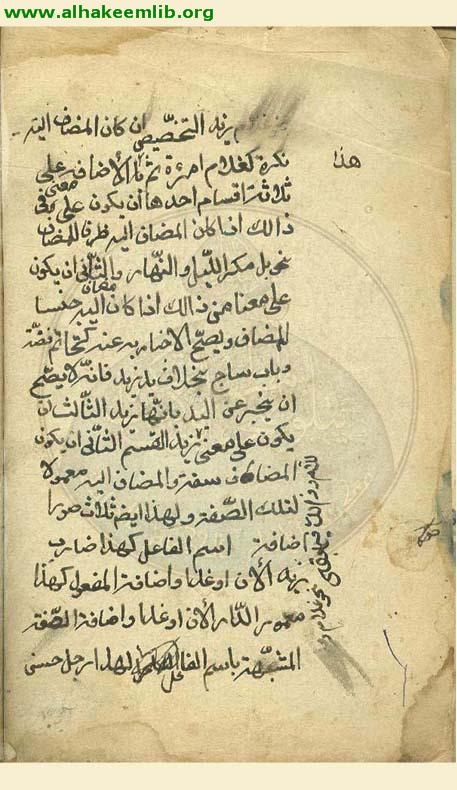 www.alhakeemlib.org
يزيد التخصيص ان كان المضاف اليه
هذا
نكرة كغلام امرءة ثم الأضافة على
ثلاثة اقسام احدها أن يكون على معنى في
ذالك اذا كان المضاف اليه ظرفا للمضاف
نحو بل مكر الليل والنهار والثاني ان يكون
على معنا من ذالك اذا كان المضاف اليه جنسا
للمضاف ويصح الاخبار به عنه كخاتم فضة
وباب ساج بخلاف يد زيد فانه لا يصح
ان يخبر عن اليد بانها زيد الثالث ان
يكون على معنى يزيد القسم الثاني ان يكون
المضاف سفة والمضاف اليه معمولا
لتلك الصفة ولهذا ايضم ثلاث صورا
اضافة اسم الفاعل كهذا ضارب
يزيد الأن اوغدا واضافة المفعل كهذا
معمور الدار الأن اوغدا واضافة الصفة
المشبهة باسم الفاعل كهذا رجل حسنى